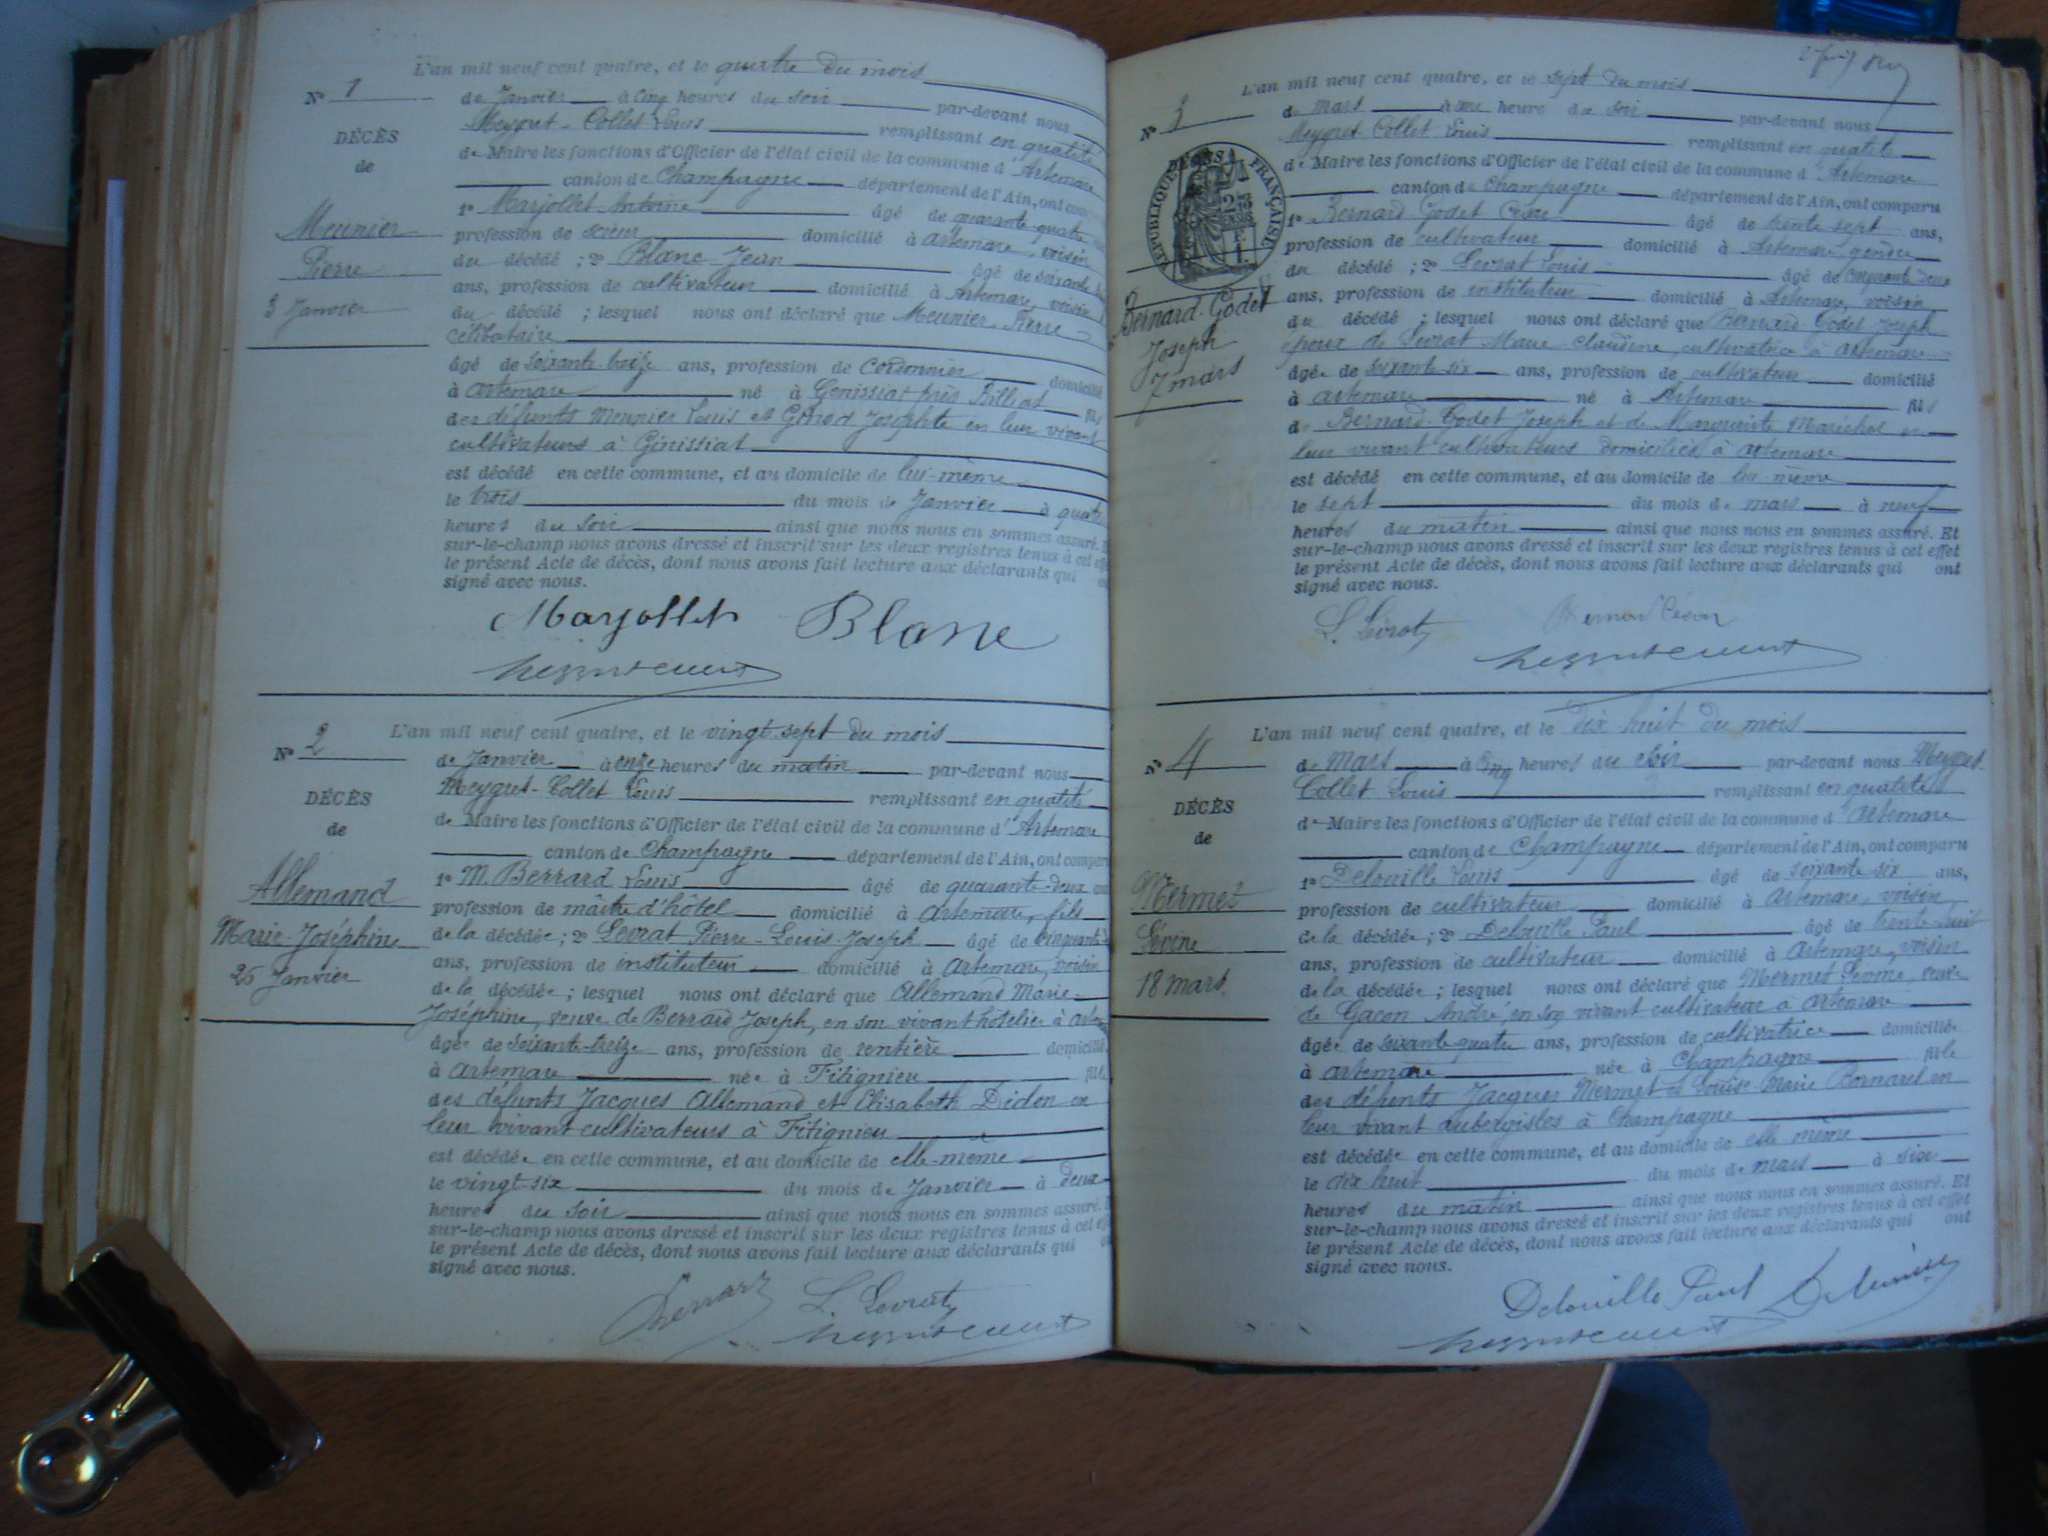 L'an mil neuf cent quatre, et le quatre du mois
N° 1
de Janvier à cinq heures du soir par-devant nous
Meygret-Collet Louis remplissant en qualité
DÉCÈS
de Maire les fonctions d'Officier de l'état civil de la commune d'Artemare
de
canton de Champagne département de l'Ain, ont comparu
1° Marjollet Antoine âgé de quarante quatre
Meunier
profession de scieur domicilié à Artemare, voisin
du décédé ; 2° Blanc Jean âgé de soixante
Pierre
ans, profession de cultivateur domicilié à Artemare, voisin
3 Janvier
du décédé ; lesquel nous ont déclaré que Meunier Pierre
célibataire
âgé de soixante treize ans, profession de cordonnier domicilié
à Artemare né à Génissiat près Billiat fils
des défunts Meunier Louis et Girod Josephte en leur vivant
cultivateurs à Génissiat
est décédé en cette commune, et au domicile de lui-même
le trois du mois de Janvier à quatre
heures du soir ainsi que nous nous en sommes assuré. Et
sur-le-champ nous avons dressé et inscrit sur les deux registres tenus à cet effet
le présent Acte de décès, dont nous avons fait lecture aux déclarants qui ont
signé avec nous.
Marjollet Blanc
L'an mil neuf cent quatre, et le vingt-sept du mois
N° 2
de Janvier à onze heures du matin par-devant nous
Meygret-Collet Louis remplissant en qualité
DÉCÈS
de Maire les fonctions d'Officier de l'état civil de la commune d'Artemare
de
canton de Champagne département de l'Ain, ont comparu
1° M. Berrard Louis âgé de quarante-deux ans
Allemand
profession de maître d'hôtel domicilié à Artemare, fils
Marie-Joséphine
de la décédée ; 2° Levrat Pierre-Louis-Joseph âgé de cinquante
ans, profession de instituteur domicilié à Artemare, voisin
25 Janvier
de la décédée ; lesquel nous ont déclaré que Allemand Marie-
Joséphine, veuve de Berrard Joseph, en son vivant hôtelier à Artemare
âgée de soixante-treize ans, profession de rentière domiciliée
à Artemare née à Fitignieu fille
des défunts Jacques Allemand et Elisabeth Diden en
leur vivant cultivateurs à Fitignieu
est décédée en cette commune, et au domicile de elle-même
le vingt-six du mois de Janvier à deux
heures du soir ainsi que nous nous en sommes assuré. Et
sur-le-champ nous avons dressé et inscrit sur les deux registres tenus à cet effet
le présent Acte de décès, dont nous avons fait lecture aux déclarants qui ont
signé avec nous.
Berrard L. Levrat
L'an mil neuf cent quatre, et le sept du mois
N° 3
de mars à une heure du soir par-devant nous
Meygret-Collet Louis remplissant en qualité
de Maire les fonctions d'Officier de l'état civil de la commune d'Artemare
RÉPUBLIQUE FRANÇAISE
canton de Champagne département de l'Ain, ont comparu
1° Bernard-Godet César âgé de trente sept ans,
profession de cultivateur domicilié à Artemare, gendre
du décédé ; 2° Levrat Louis âgé de cinquante deux
Bernard-Godet
ans, profession de instituteur domicilié à Artemare, voisin
Joseph
du décédé ; lesquel nous ont déclaré que Bernard-Godet Joseph
7 mars
époux de Levrat Marie-Claudine, cultivatrice à Artemare
âgée de soixante-six ans, profession de cultivateur domicilié
à Artemare né à Artemare fils
de Bernard-Godet Joseph et de Marguerite Maréchal en
leur vivant cultivateurs domiciliés à Artemare
est décédé en cette commune, et au domicile de lui-même
le sept du mois de mars à neuf
heures du matin ainsi que nous nous en sommes assuré. Et
sur-le-champ nous avons dressé et inscrit sur les deux registres tenus à cet effet
le présent Acte de décès, dont nous avons fait lecture aux déclarants qui ont
signé avec nous.
L. Levrat Bernard César
L'an mil neuf cent quatre, et le dix huit du mois
N° 4
de Mars à cinq heures du soir par-devant nous Meygret-
Collet Louis remplissant en qualité
DÉCÈS
de Maire les fonctions d'Officier de l'état civil de la commune d'Artemare
de
canton de Champagne département de l'Ain, ont comparu
1° Delouille Louis âgé de soixante six ans,
Mermet
profession de cultivateur domicilié à Artemare, voisin
Lévine
de la décédée ; 2° Delouille Paul âgé de trente huit
ans, profession de cultivateur domicilié à Artemare, voisin
18 mars
de la décédée ; lesquel nous ont déclaré que Mermet Levine, veuve
de Gacon André en son vivant cultivateur à Artemare
âgée de soixante quatre ans, profession de cultivatrice domiciliée
à Artemare née à Champagne fille
des défunts Jacques Mermet et Louise-Marie Bornarel en
leur vivant aubergistes à Champagne
est décédée en cette commune, et au domicile de elle même
le dix huit du mois de mars à six
heures du matin ainsi que nous nous en sommes assuré. Et
sur-le-champ nous avons dressé et inscrit sur les deux registres tenus à cet effet
le présent Acte de décès, dont nous avons fait lecture aux déclarants qui ont
signé avec nous.
Delouille Paul